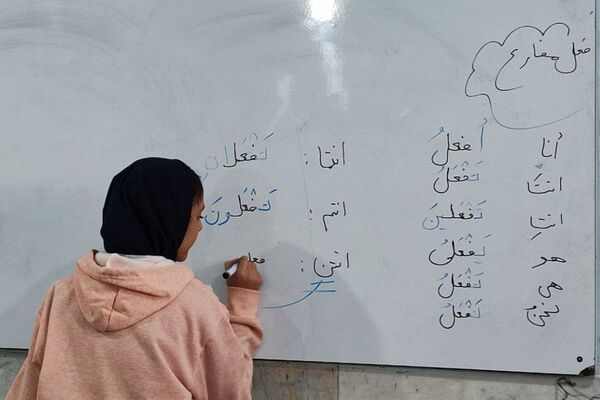 فعل مضارع
أنا أفعلُ
انتَ تَفْعَلُ
انتِ تَفْعَلینَ
هو یَفْعَلُ
هی تَفْعَلُ
نحنُ نَفْعَلُ
انتما : تَفْعَلانِ
انتم : تَفْعَلونَ
انتن : فعل